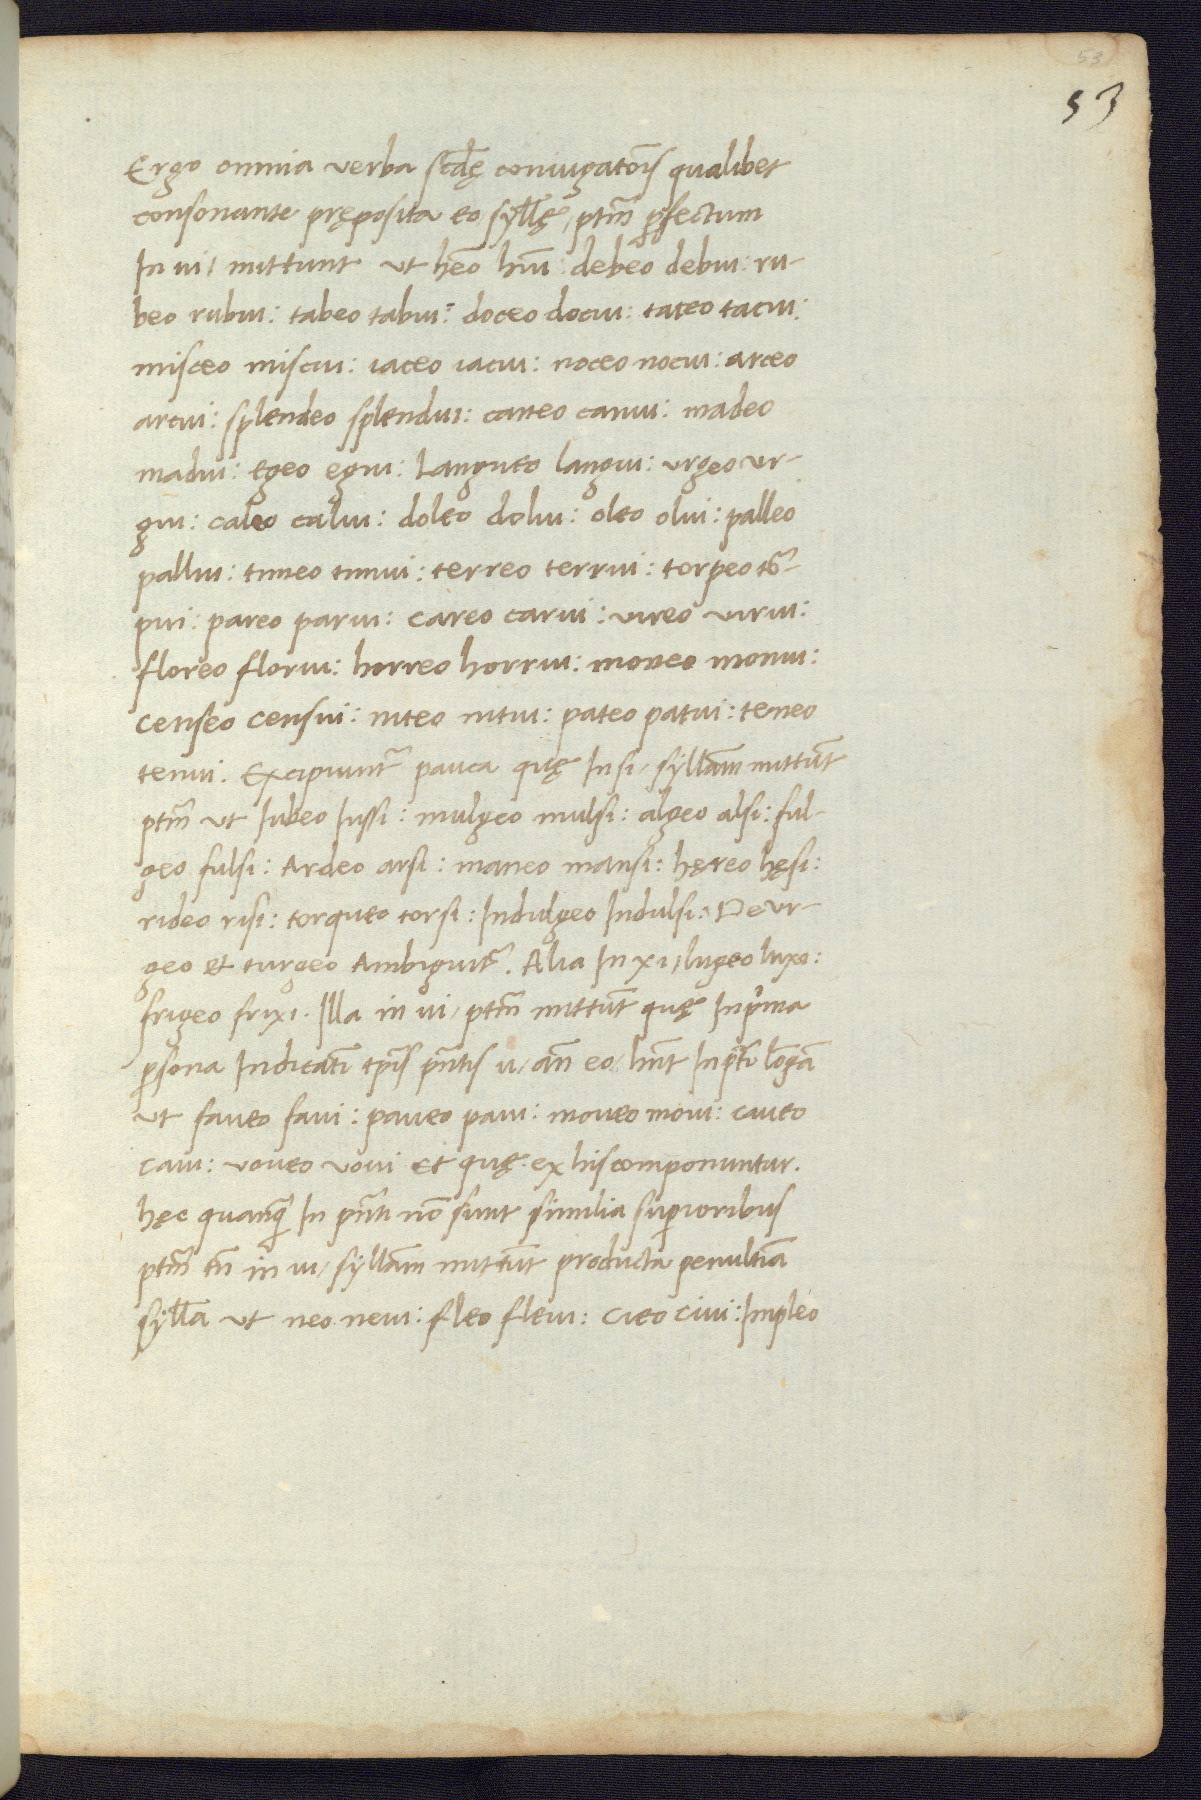 53
53
Ergo omnia verba scdę coniugatõis qualibet
consonante pręposita eo syllę, ptm̃ ꝑfectum
In ui, mittunt ut hẽo hũi: debeo debui: ru-
beo rubui: tabeo tabui: doceo docui: taceo tacui:
misceo miscui: iaceo iacui: noceo nocui: arceo
arcui: splendeo splendui: caneo canui: madeo
madui: Egeo egui: Langueo langui: urgeo ur-
gui: caleo calui: doleo dolui: oleo olui: palleo
pallui: timeo timui: terreo terrui: torpeo tor-
pui: pareo parui: careo carui: vireo virui:
floreo florui: horreo horrui: moneo monui:
censeo censui: niteo nitui: pateo patui: teneo
tenui. Excipiunt᷑ pauca quę In si, syllãm mittũt
ptm̃ ut Iubeo Iussi: mulgeo mulsi: algeo alsi: ful-
geo fulsi: Ardeo arsi: maneo mansi: hęreo hęsi:
rideo risi: torqueo torsi: Indulgeo Indulsi: De ur-
geo et turgeo Ambiguit᷑. Alia In xi, lugeo luxi:
frigeo frixi. Illa in ui, ptm̃ mittũt quę In pⁱma
ꝑsona Indicatĩ tp̃is pñtis u, añ eo, hñt In ptĩ lõgã
ut faveo favi: paveo pavi: moveo movi: caveo
cavi: voveo vovi Et quę ex his componuntur.
hęc quanqꝫ In pñti nõ sunt similia suꝑioribus
ptm̃ tñ in ui, syllãm mittũt producta penultĩa
sylla ut neo nevi: fleo flevi: cieo civi: Impleo